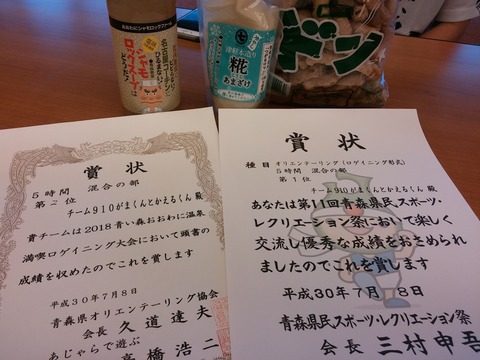 おおわにシャモロックファーム
シャモ
ロックスープ
津軽木造り
糀
あまざけ
ドン
賞状
5時間 混合の部
第2位
チーム910がまくんとかえるくん 殿
貴チームは2018青い森おおわに温泉
満喫ロゲイニング大会において頭書の
成績を収めたのでこれを賞します
平成30年7月8日
青森県オリエンテーリング協会
会長 久道達夫
あじゃらで遊ぶ
高橋浩二
賞状
種目 オリエンテーリング(ロゲイニング形式)
5時間 混合の部
第1位
チーム910がまくんとかえるくん 殿
あなたは第11回青森県民スポーツ・
レクリエーション祭において楽しく
交流し優秀な成績をおさめられ
ましたのでこれを賞します
平成30年7月8日
青森県民スポーツ・レクリエーション祭
会長 三村申吾